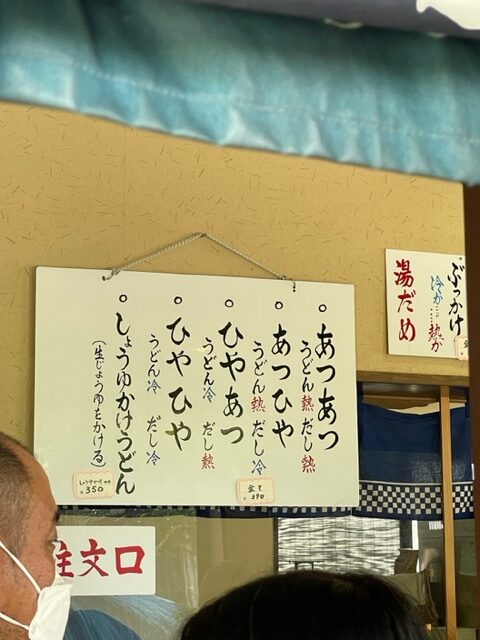 ぶっかけ
冷か…熱か
湯だめ
○あつあつ
うどん熱 だし熱
○あつひや
うどん熱 だし冷
○ひやあつ
うどん冷 だし熱
○ひやひや
うどん冷 だし冷
○しょうゆかけうどん
(生じょうゆをかける)
¥390
¥350
文口